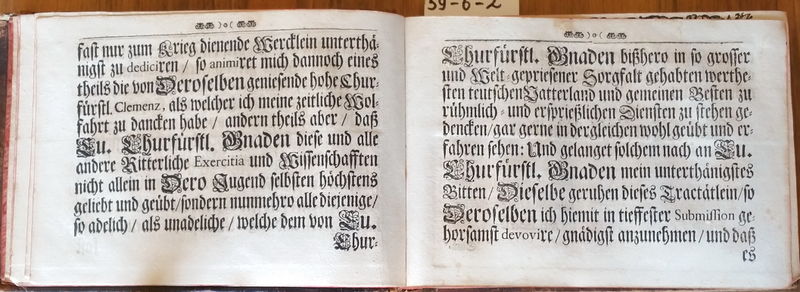 fast nur zum Krieg dienende Wercklein unterthä-
nigst zu dediciren / so animiret mich dannoch eines
theils die von Deroselben geniesende hohe Chur-
fürstl. Clemenz, als welcher ich meine zeitliche Wol-
fahrt zu dancken habe / andern theils aber / daß
Eu. Churfürstl. Gnaden diese und alle
andere Ritterliche Exercitia und Wissenschafften
nicht allein in Dero Jugend selbsten höchstens
geliebt und geübt / sondern nunmehro alle diejenige /
so adelich / als unadeliche / welche dem von Eu.
Chur-
39-6-2
Churfürstl. Gnaden bißhero in so grosser
und Welt-gepriesener Sorgfalt gehabten werthe-
sten teutschen Vatterland und gemeinen Besten zu
rühmlich- und ersprießlichen Diensten zu stehen ge-
dencken / gar gerne in dergleichen wohl geübt und er-
fahren sehen: Und gelanget solchem nach an Eu.
Churfürstl. Gnaden mein unterthänigstes
Bitten / Dieselbe geruhen dieses Tractätlein / so
Deroselben ich hiemit in tieffester Submission ge-
horsamst devovire / gnädigst anzunehmen / und daß
es